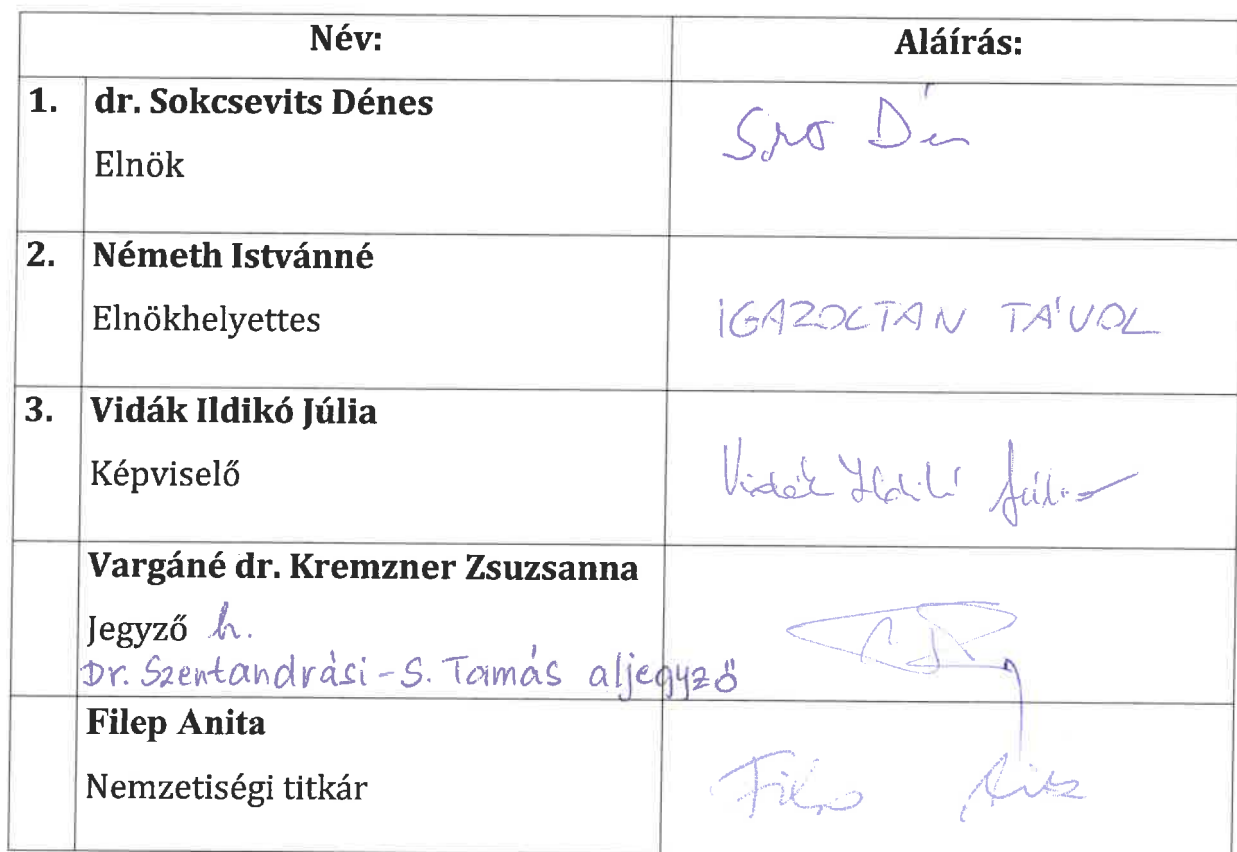 Név: Aláírás:
1. dr. Sokcsevits Dénes
Elnök
2. Németh Istvánné
Elnökhelyettes IGAZOLTAN TÁVOL
3. Vidák Ildikó Júlia
Képviselő Vidák Ildikó Júlia
Vargáné dr. Kremzner Zsuzsanna
Jegyző h.
Dr. Szentandrási-S. Tamás aljegyző
Filep Anita
Nemzetiségi titkár Filep Anita